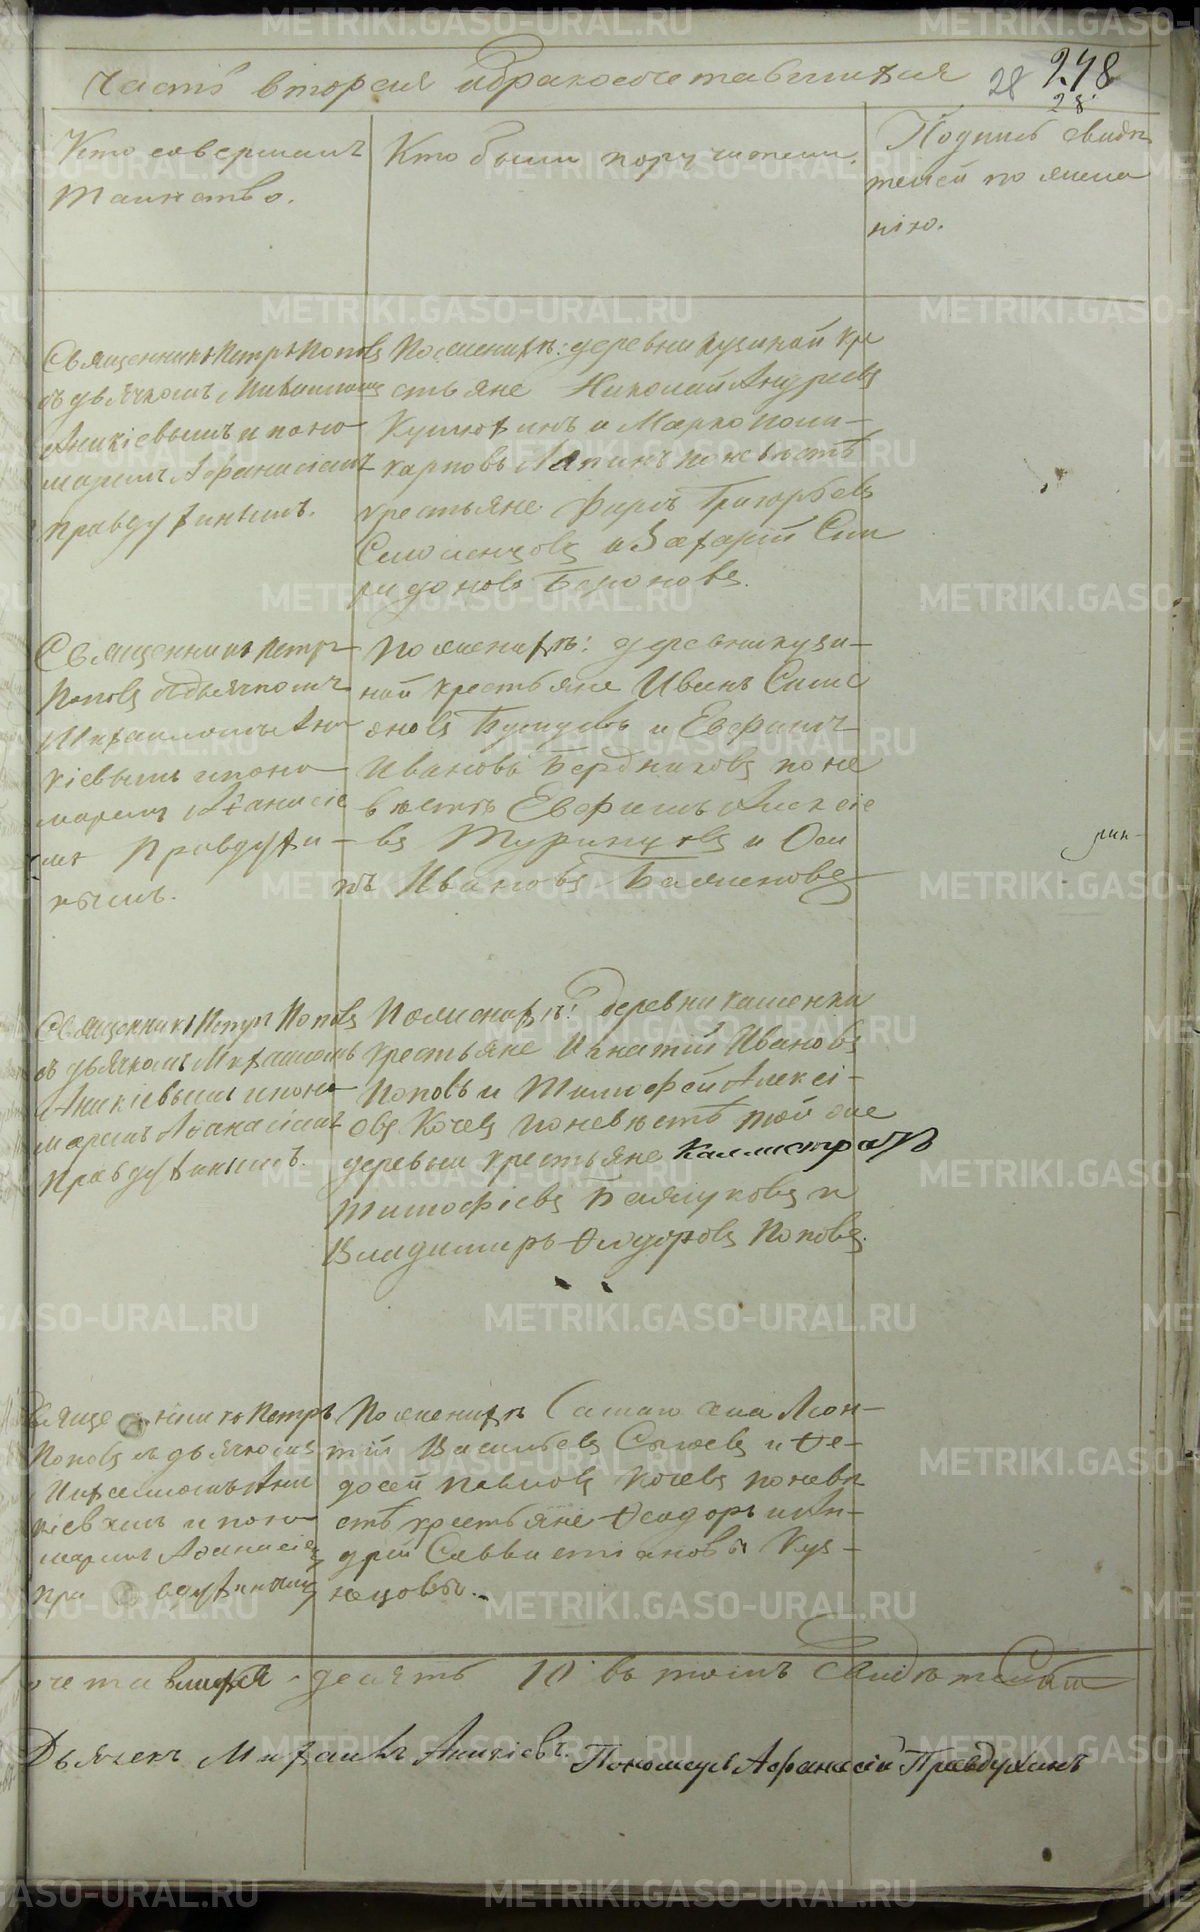 Часть вторая о бракосочетавшихся 28 248
28
Кто совершалъ
таинство.
Кто были поручители.
Подпись свидѣ
телей по жела
нію.
Священникъ Петръ Поповъ
съ дьячкомъ Михаиломъ
Аникіевымъ и поно
маремъ Афанасіемъ
Правдухинымъ.
По женихѣ: деревни Кузиной кре
стьяне Николай Андреевъ
и Марко Поли-
карповъ Лапинъ по невѣстѣ
крестьяне Фирсъ Григорьевъ
Смоленцовъ и Захарій Спи
ридоновъ Бароновъ.
Священникъ Петръ
Поповъ съ дьячкомъ
Михаиломъ Ани
кіевымъ и поно
маремъ Аѳанасіе
мъ Правдухи-
нымъ.
По женихѣ: деревни Кузи-
ной крестьяне Иванъ Симе
оновъ и Евфимъ
Ивановъ Бердниковъ по не
вѣстѣ Евфимъ Алексіе
въ Турунцовъ и Оси
пъ Ивановъ Балменовъ
Священникъ Петръ Поповъ
съ дьячкомъ Михаиломъ
Аникіевымъ и поно
маремъ Аѳанасіемъ
Правдухинымъ.
По женихѣ: деревни Каменки
крестьяне Игнатій Ивановъ
Поповъ и Тимофей Алексі-
евъ Кочевъ по невѣстѣ той же
деревни крестьяне Каллистратъ
Тимофіевъ Балчуковъ и
Владимиръ Ѳеодоровъ Поповъ.
Священникъ Петръ
Поповъ съ дьячкомъ
Михаиломъ Ани
кіевымъ и поно
маремъ Аѳанасіемъ
Правдухинымъ
По женихѣ Самаго села Леон-
тій Васильевъ Сычевъ и Ѳе-
досей Павловъ Кочевъ по невѣ
стѣ крестьяне Ѳеодоръ и Ан-
дрей Саввастіановы Куз-
нецовы.
очетавшихся десять 10 въ томъ свидѣтельст
Дьячекъ Михаилъ Аникіевъ. Пономарь Афанасій Правдухинъ
METRIKI.GASO-URAL.RU